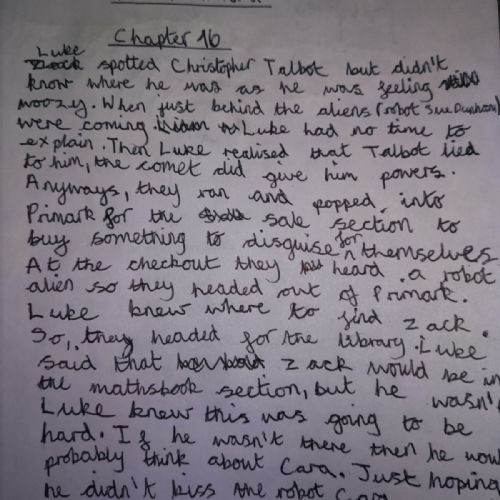 Chapter 16
Luke
spotted Christopher Talbot but didn't
know where he was as he was feeling
woozy. When just behind the aliens (robot Sue Dunham)
were coming. Luke had no time to
explain. Then Luke realised that Talbot lied
to him, the comet did give him powers.
Anyways, they ran and popped into
Primark for the sale section to
buy something to disguise for themselves
At the checkout they heard a robot
alien so they headed out of Primark.
Luke knew where to find Zack.
So, they headed for the library. Luke
said that Zack would be in
the mathsbook section, but he wasn't
Luke knew this was going to be
hard. If he wasn't there then he wou
probably think about Cara. Just hoping
he didn't kiss the robot Cara